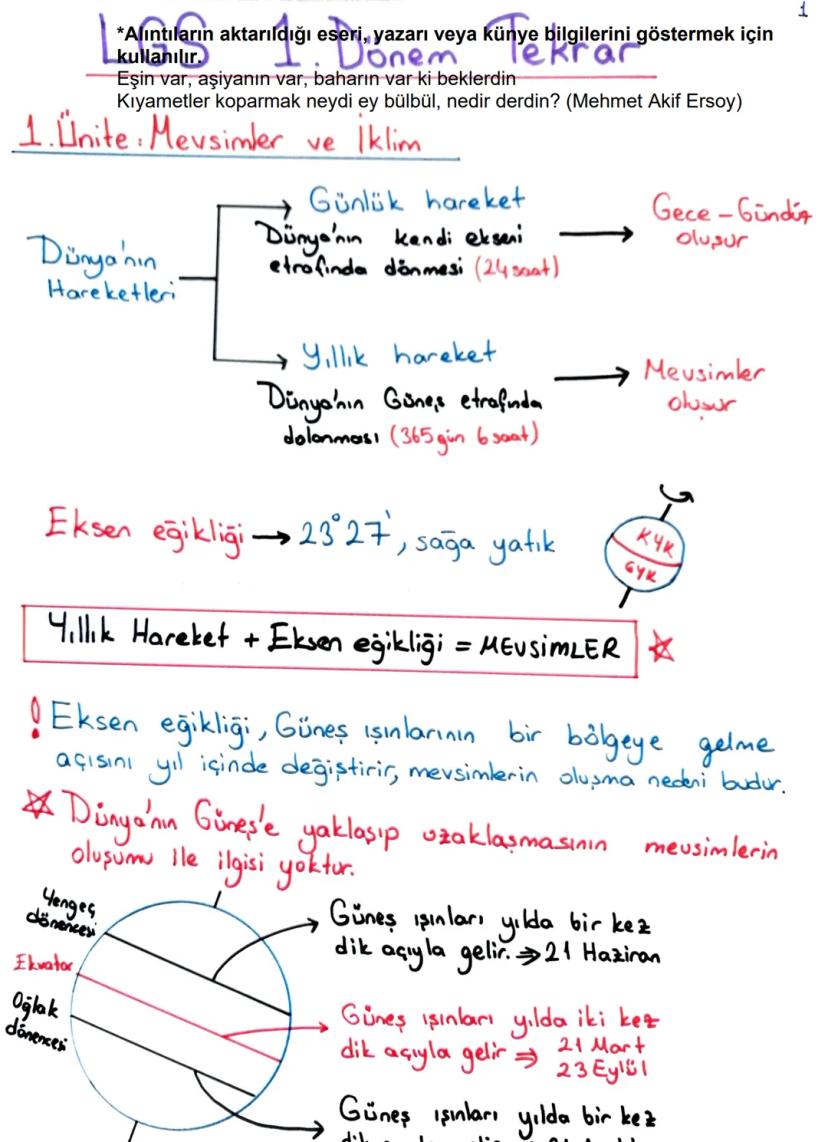 1
LGS 1. Dönem Tekrar
*Alıntıların aktarıldığı eseri, yazarı veya künye bilgilerini göstermek için
kullanılır.
Eşin var, aşiyanın var, baharın var ki beklerdin
Kıyametler koparmak neydi ey bülbül, nedir derdin? (Mehmet Akif Ersoy)
1. Ünite: Mevsimler ve İklim
Dünya'nın
Hareketleri
Günlük hareket
Dünya'nın kendi ekseni
etrafında dönmesi (24 saat)
Gece - Gündüz
oluşur
Yıllık hareket
Dünya'nın Güneş etrafında
dolanması (365 gün 6 saat)
Mevsimler
oluşur
Eksen eğikliği → 23°27', sağa yatık
KYK
GYK
Yıllık Hareket + Eksen eğikliği = MEVSİMLER
! Eksen eğikliği, Güneş ışınlarının bir bölgeye gelme
açısını yıl içinde değiştirir, mevsimlerin oluşma nedeni budur.
Dünya'nın Güneş'e yaklaşıp uzaklaşmasının mevsimlerin
oluşumu ile ilgisi yoktur.
Yengeç
dönencesi
Güneş ışınları yılda bir kez
dik açıyla gelir. ⇒ 21 Haziran
Ekvator
Güneş ışınları yılda iki kez
dik açıyla gelir ⇒ 21 Mart
23 Eylül
Oğlak
dönencesi
Güneş ışınları yılda bir kez